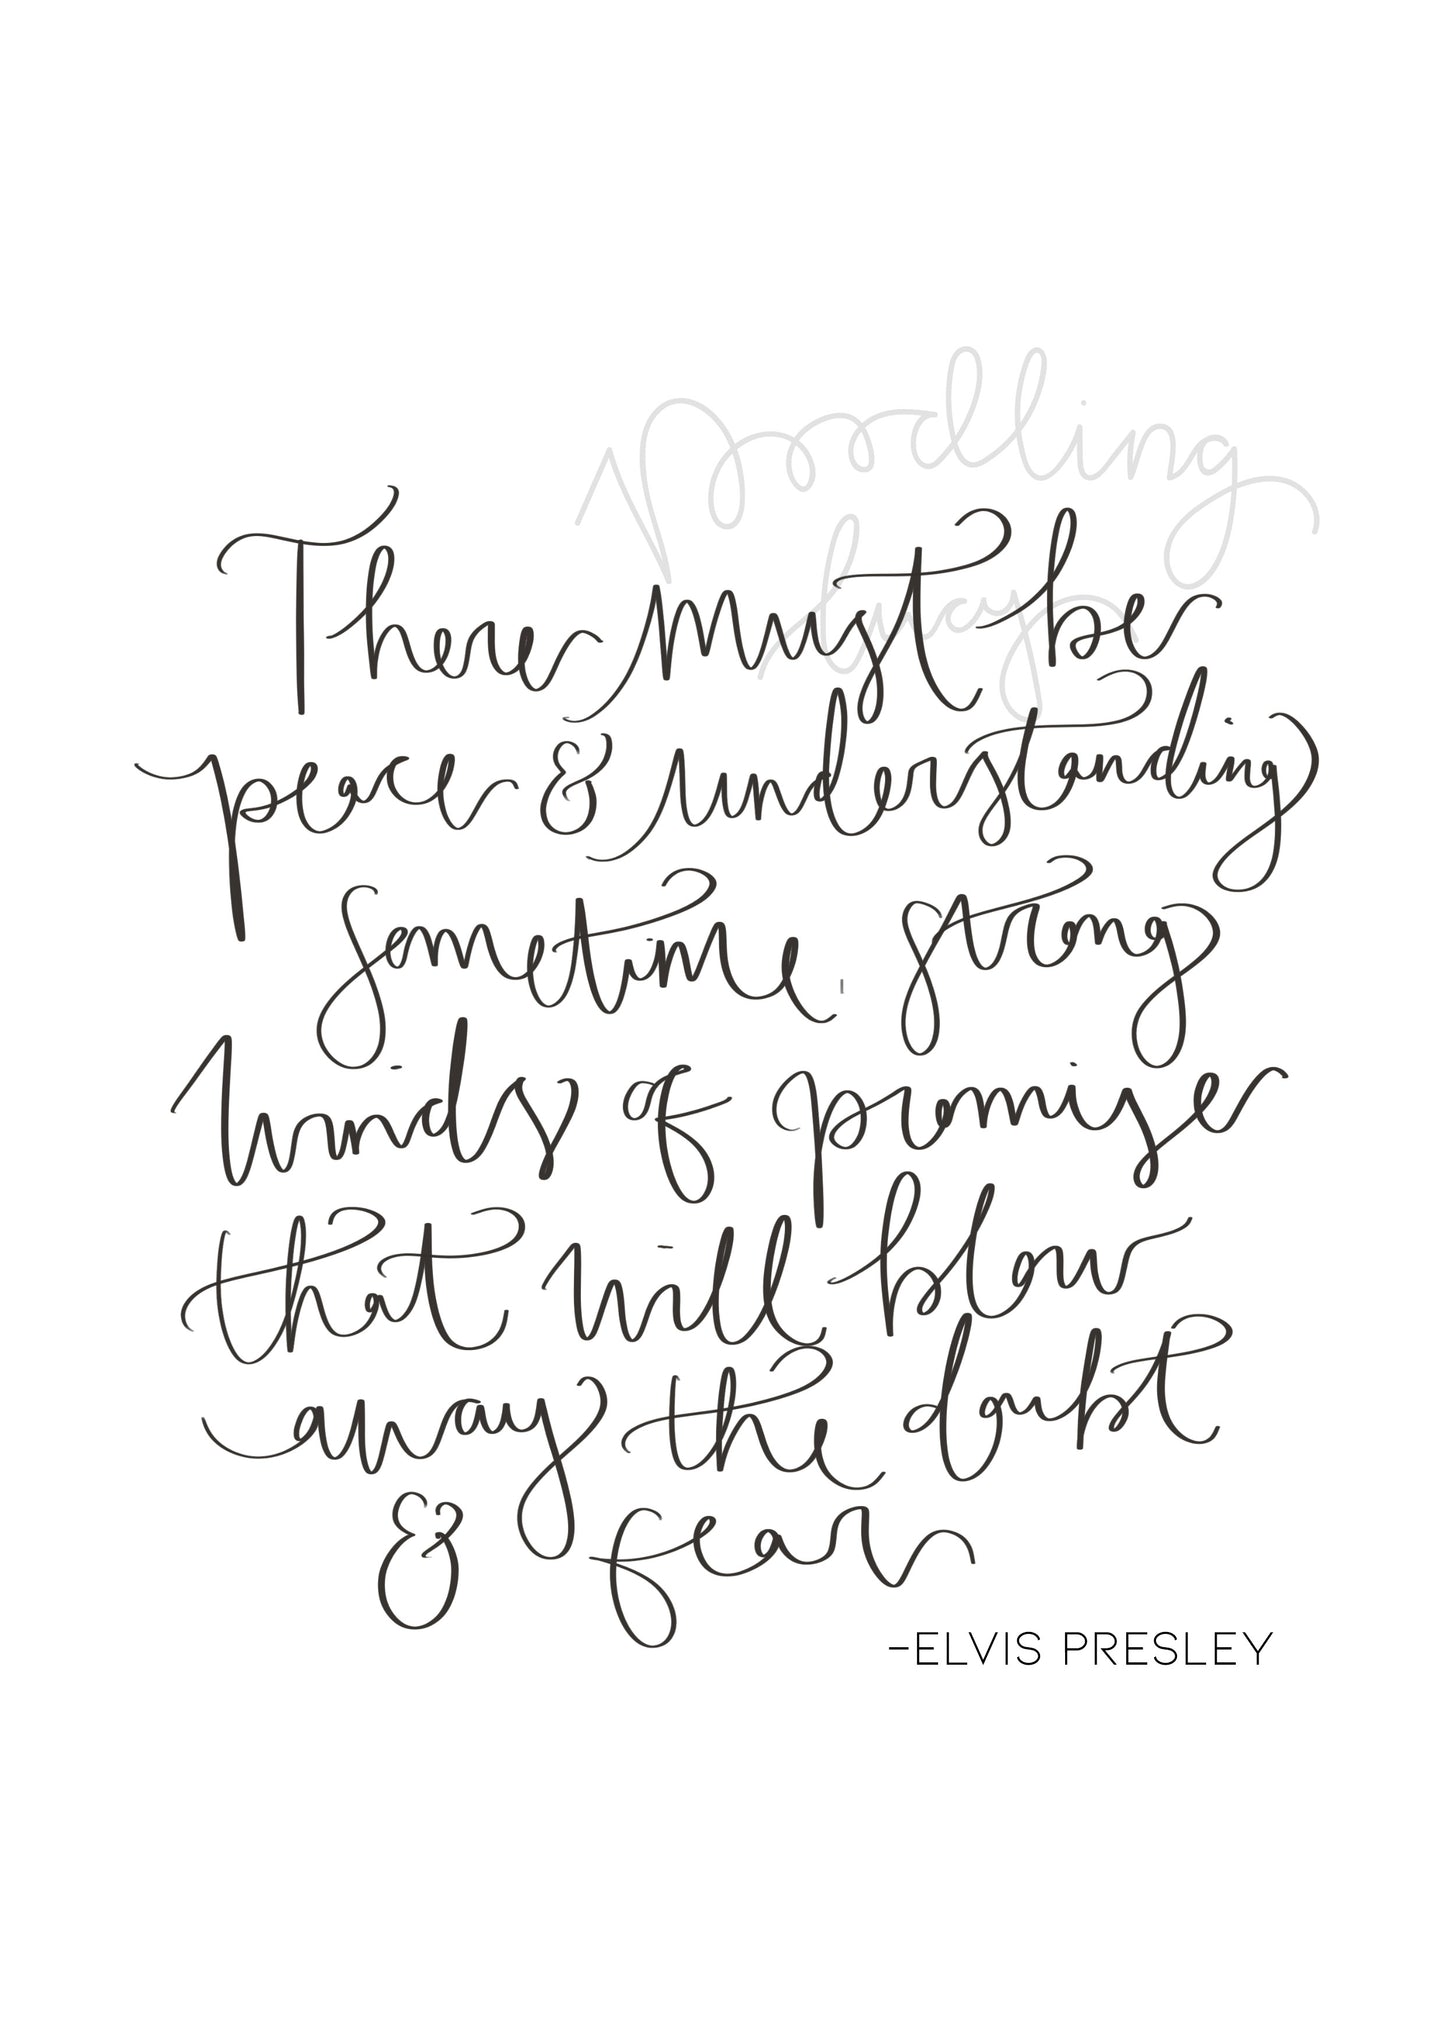 noodling
lucy
There must be
peace & understanding
sometime, strong
winds of promise
that will blow
away the doubt
& fear
-ELVIS PRESLEY